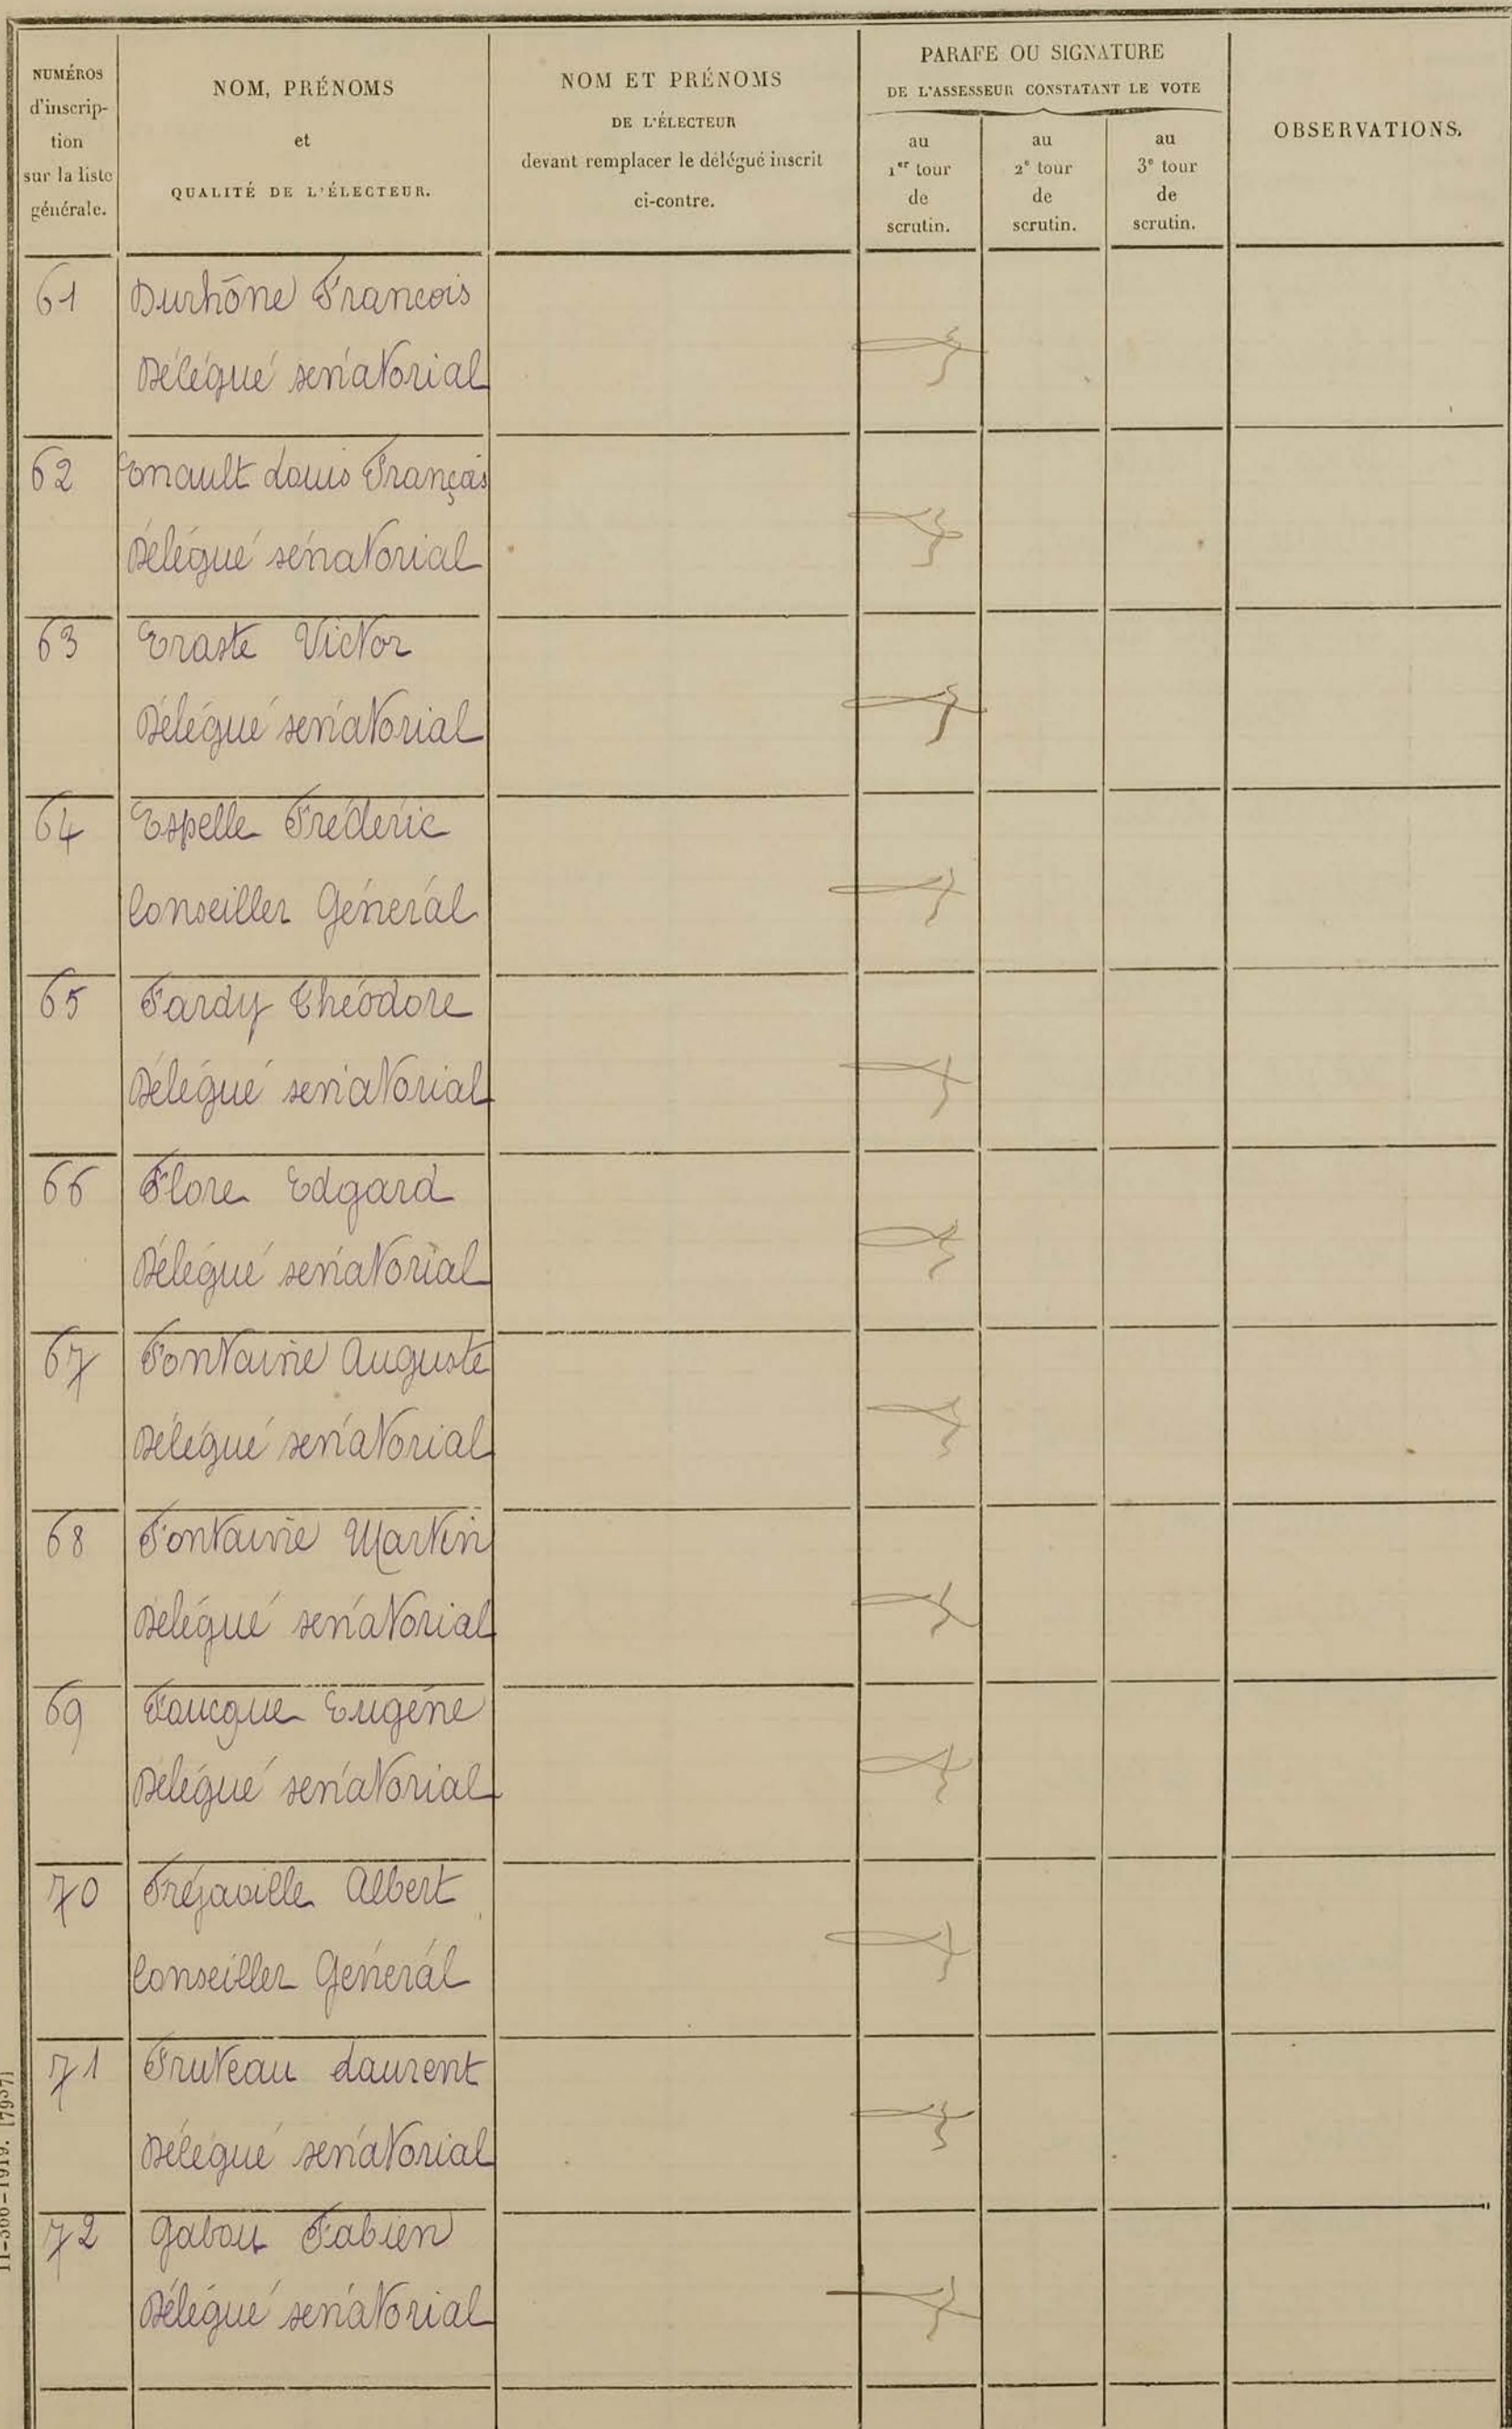 NUMÉROS
d'inscrip-
tion
sur la liste
générale.
NOM, PRÉNOMS
et
QUALITÉ DE L'ÉLECTEUR.
NOM ET PRÉNOMS
DE L'ÉLECTEUR
devant remplacer le délégué inscrit
ci-contre.
PARAFE OU SIGNATURE
DE L'ASSESSEUR CONSTATANT LE VOTE
au
1er tour
de
scrutin.
au
2e tour
de
scrutin.
au
3e tour
de
scrutin.
OBSERVATIONS.
61 Durhône Francois
Délégué sénatorial
62 Enault Louis François
Délégué sénatorial
63 Eraste Victor
Délégué sénatorial
64 Espelle Fréderic
Conseiller Général
65 Fardy Théodore
Délégué sénatorial
66 Flore Edgard
Délégué sénatorial
67 Fontaine Auguste
Délégué sénatorial
68 Fontaine Martin
Délégué sénatorial
69 Foucque Eugéne
Délégué sénatorial
70 Fréjaville Albert
Conseiller Général
71 Fruteau Laurent
Délégué sénatorial
72 Gabou Fabien
Délégué sénatorial